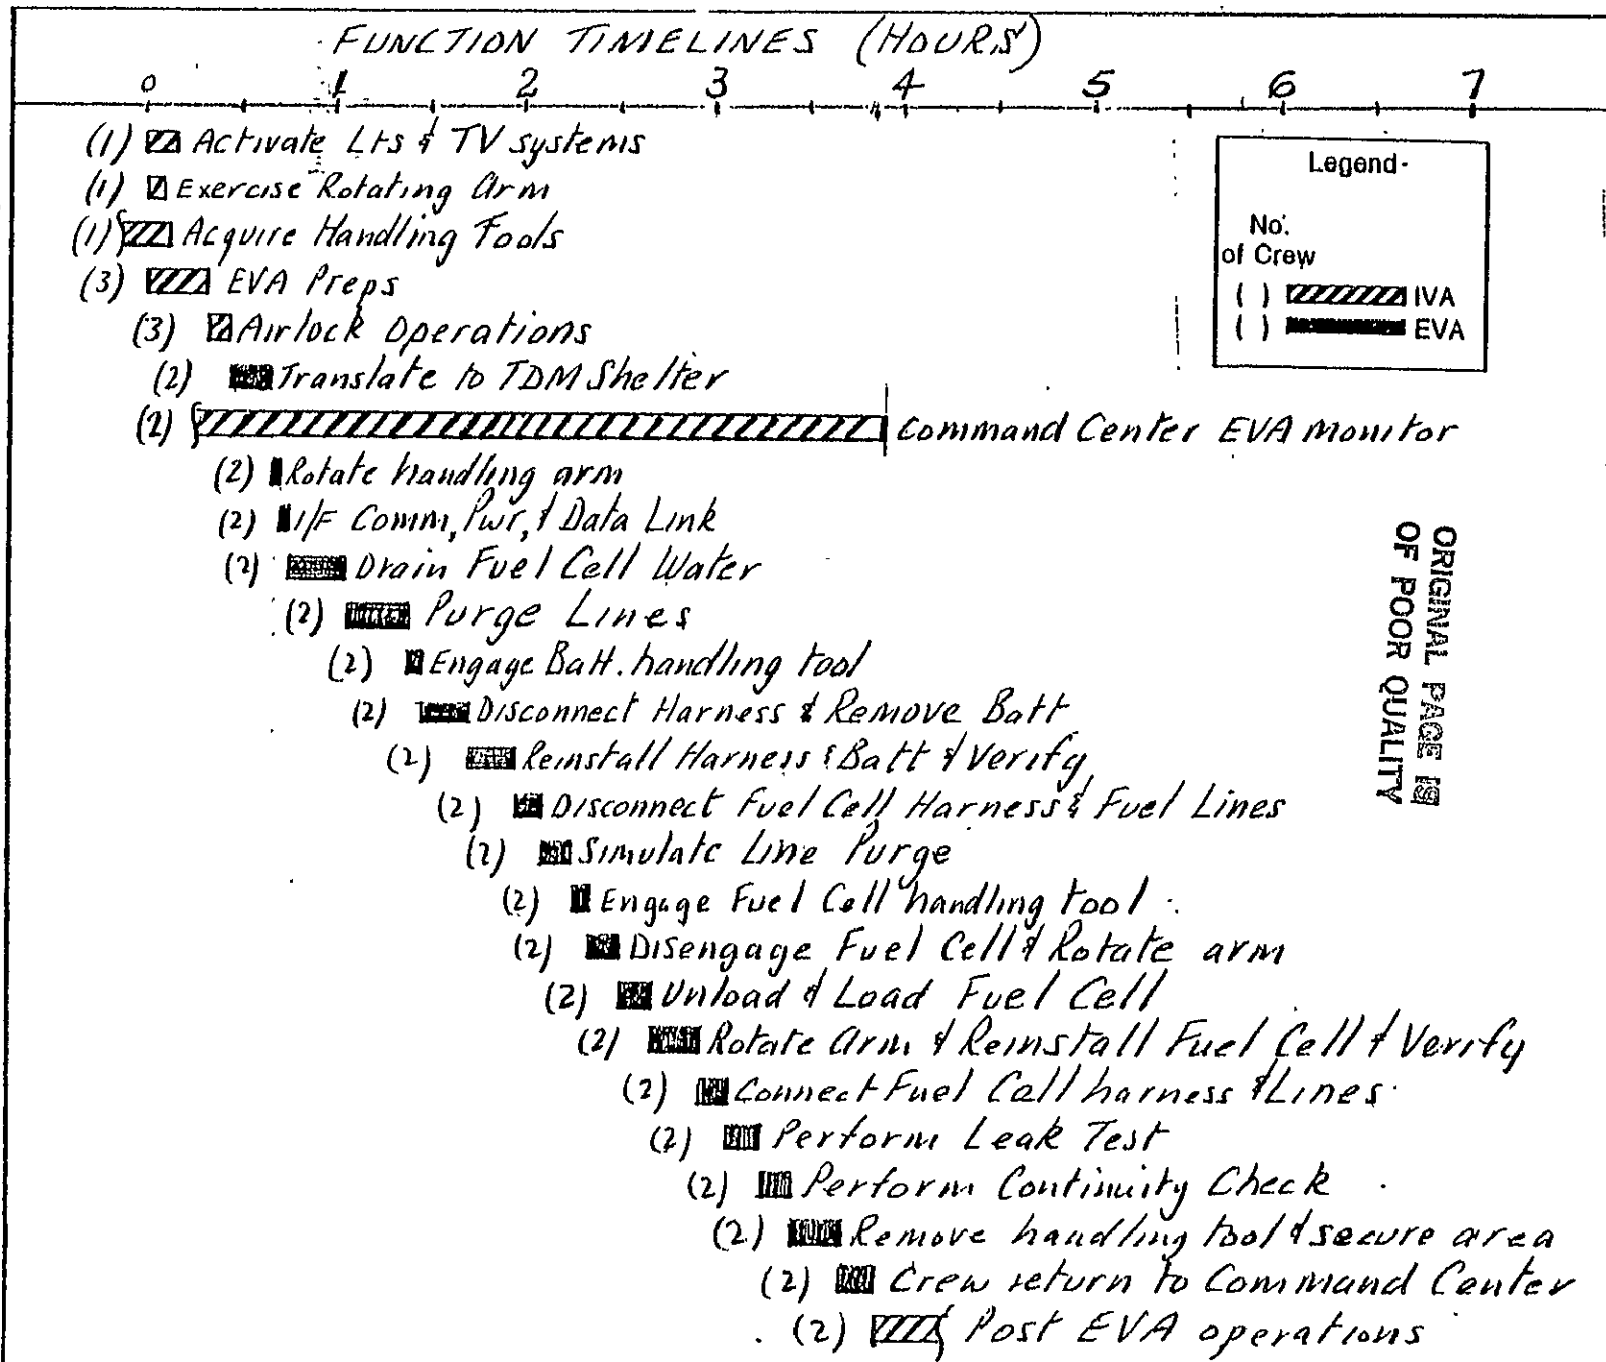 FUNCTION TIMELINES (HOURS)
0 1 2 3 4 5 6 7
(1) Activate Lts & TV systems
(1) Exercise Rotating Arm
(1) Acquire Handling Tools
(3) EVA Preps
(3) Airlock Operations
(2) Translate to TDM Shelter
(2) Command Center EVA Monitor
(2) Rotate handling arm
(2) I/F Comm, Pwr, & Data Link
(2) Drain Fuel Cell Water
(2) Purge Lines
(2) Engage Batt. handling tool
(2) Disconnect Harness & Remove Batt
(2) Reinstall Harness & Batt & Verify
(2) Disconnect Fuel Cell Harness & Fuel Lines
(2) Simulate Line Purge
(2) Engage Fuel Cell handling tool
(2) Disengage Fuel Cell & Rotate arm
(2) Unload & Load Fuel Cell
(2) Rotate Arm & Reinstall Fuel Cell & Verify
(2) Connect Fuel Cell harness & Lines
(2) Perform Leak Test
(2) Perform Continuity Check
(2) Remove handling tool & secure area
(2) Crew return to Command Center
(2) Post EVA operations
Legend-
No.
of Crew
( ) IVA
( ) EVA
ORIGINAL PAGE IS
OF POOR QUALITY